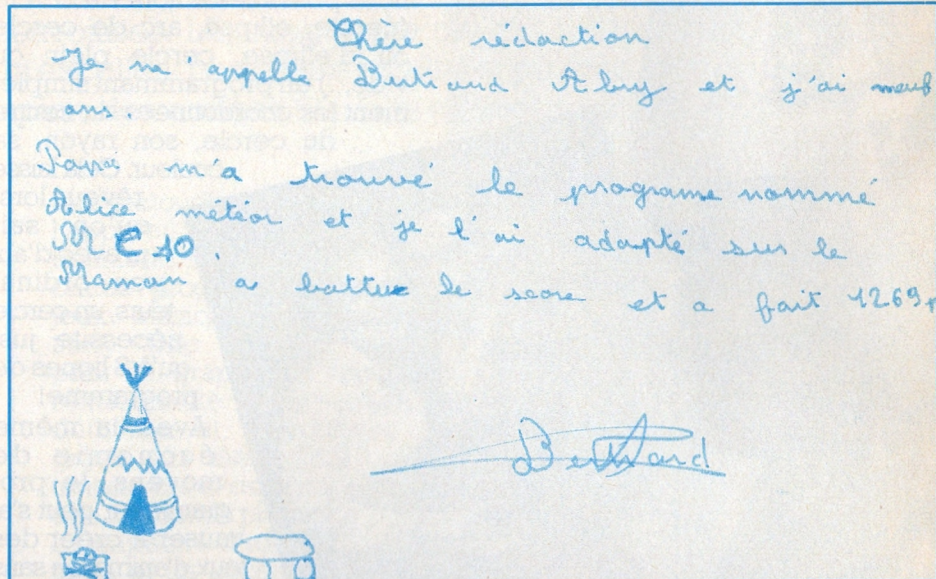 Chère rédaction
Je m'appelle Bertrand Abry et j'ai neuf
ans.
Papa m'a trouvé le programe nommé
Alice météor et je l'ai adapté sur le
MC 10.
Maman a battue le score et a fait 1269 p
Bertrand